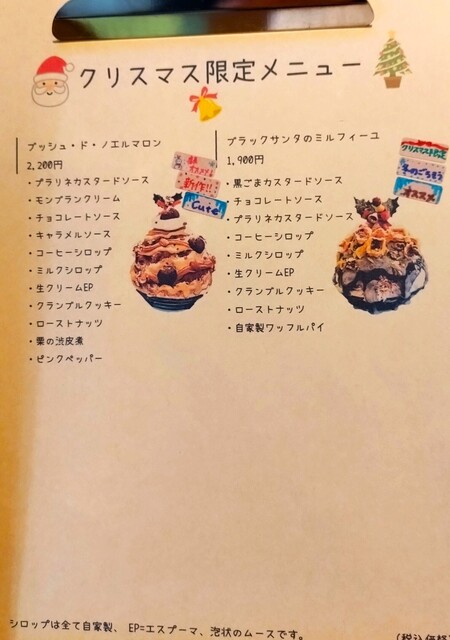 クリスマス限定メニュー
ブッシュ・ド・ノエルマロン
2,200円
・プラリネカスタードソース
・モンブランクリーム
・チョコレートソース
・キャラメルソース
・コーヒーシロップ
・ミルクシロップ
・生クリームEP
・クランブルクッキー
・ローストナッツ
・栗の渋皮煮
・ピンクペッパー
オススメ!
新作!!
Cute
ブラックサンタのミルフィーユ
1,900円
・黒ごまカスタードソース
・チョコレートソース
・プラリネカスタードソース
・コーヒーシロップ
・ミルクシロップ
・生クリームEP
・クランブルクッキー
・ローストナッツ
・自家製ワッフルパイ
クリスマス限定
冬のごちそう
オススメ
シロップは全て自家製、 EP=エスプーマ、泡状のムースです。
(税込価格